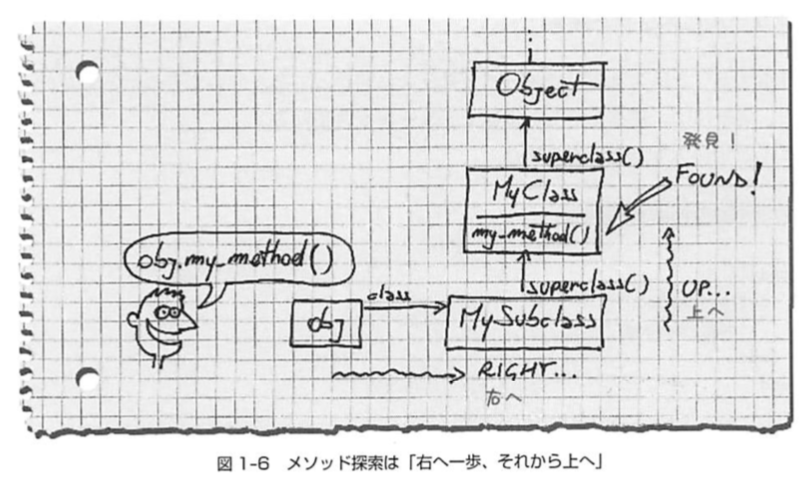 Object
superclass()
発見！
FOUND!
MyClass
my_method()
obj.my_method()
superclass()
UP...
上へ
class
obj
MySubclass
RIGHT...
右へ
図 1-6 メソッド探索は「右へ一歩、それから上へ」